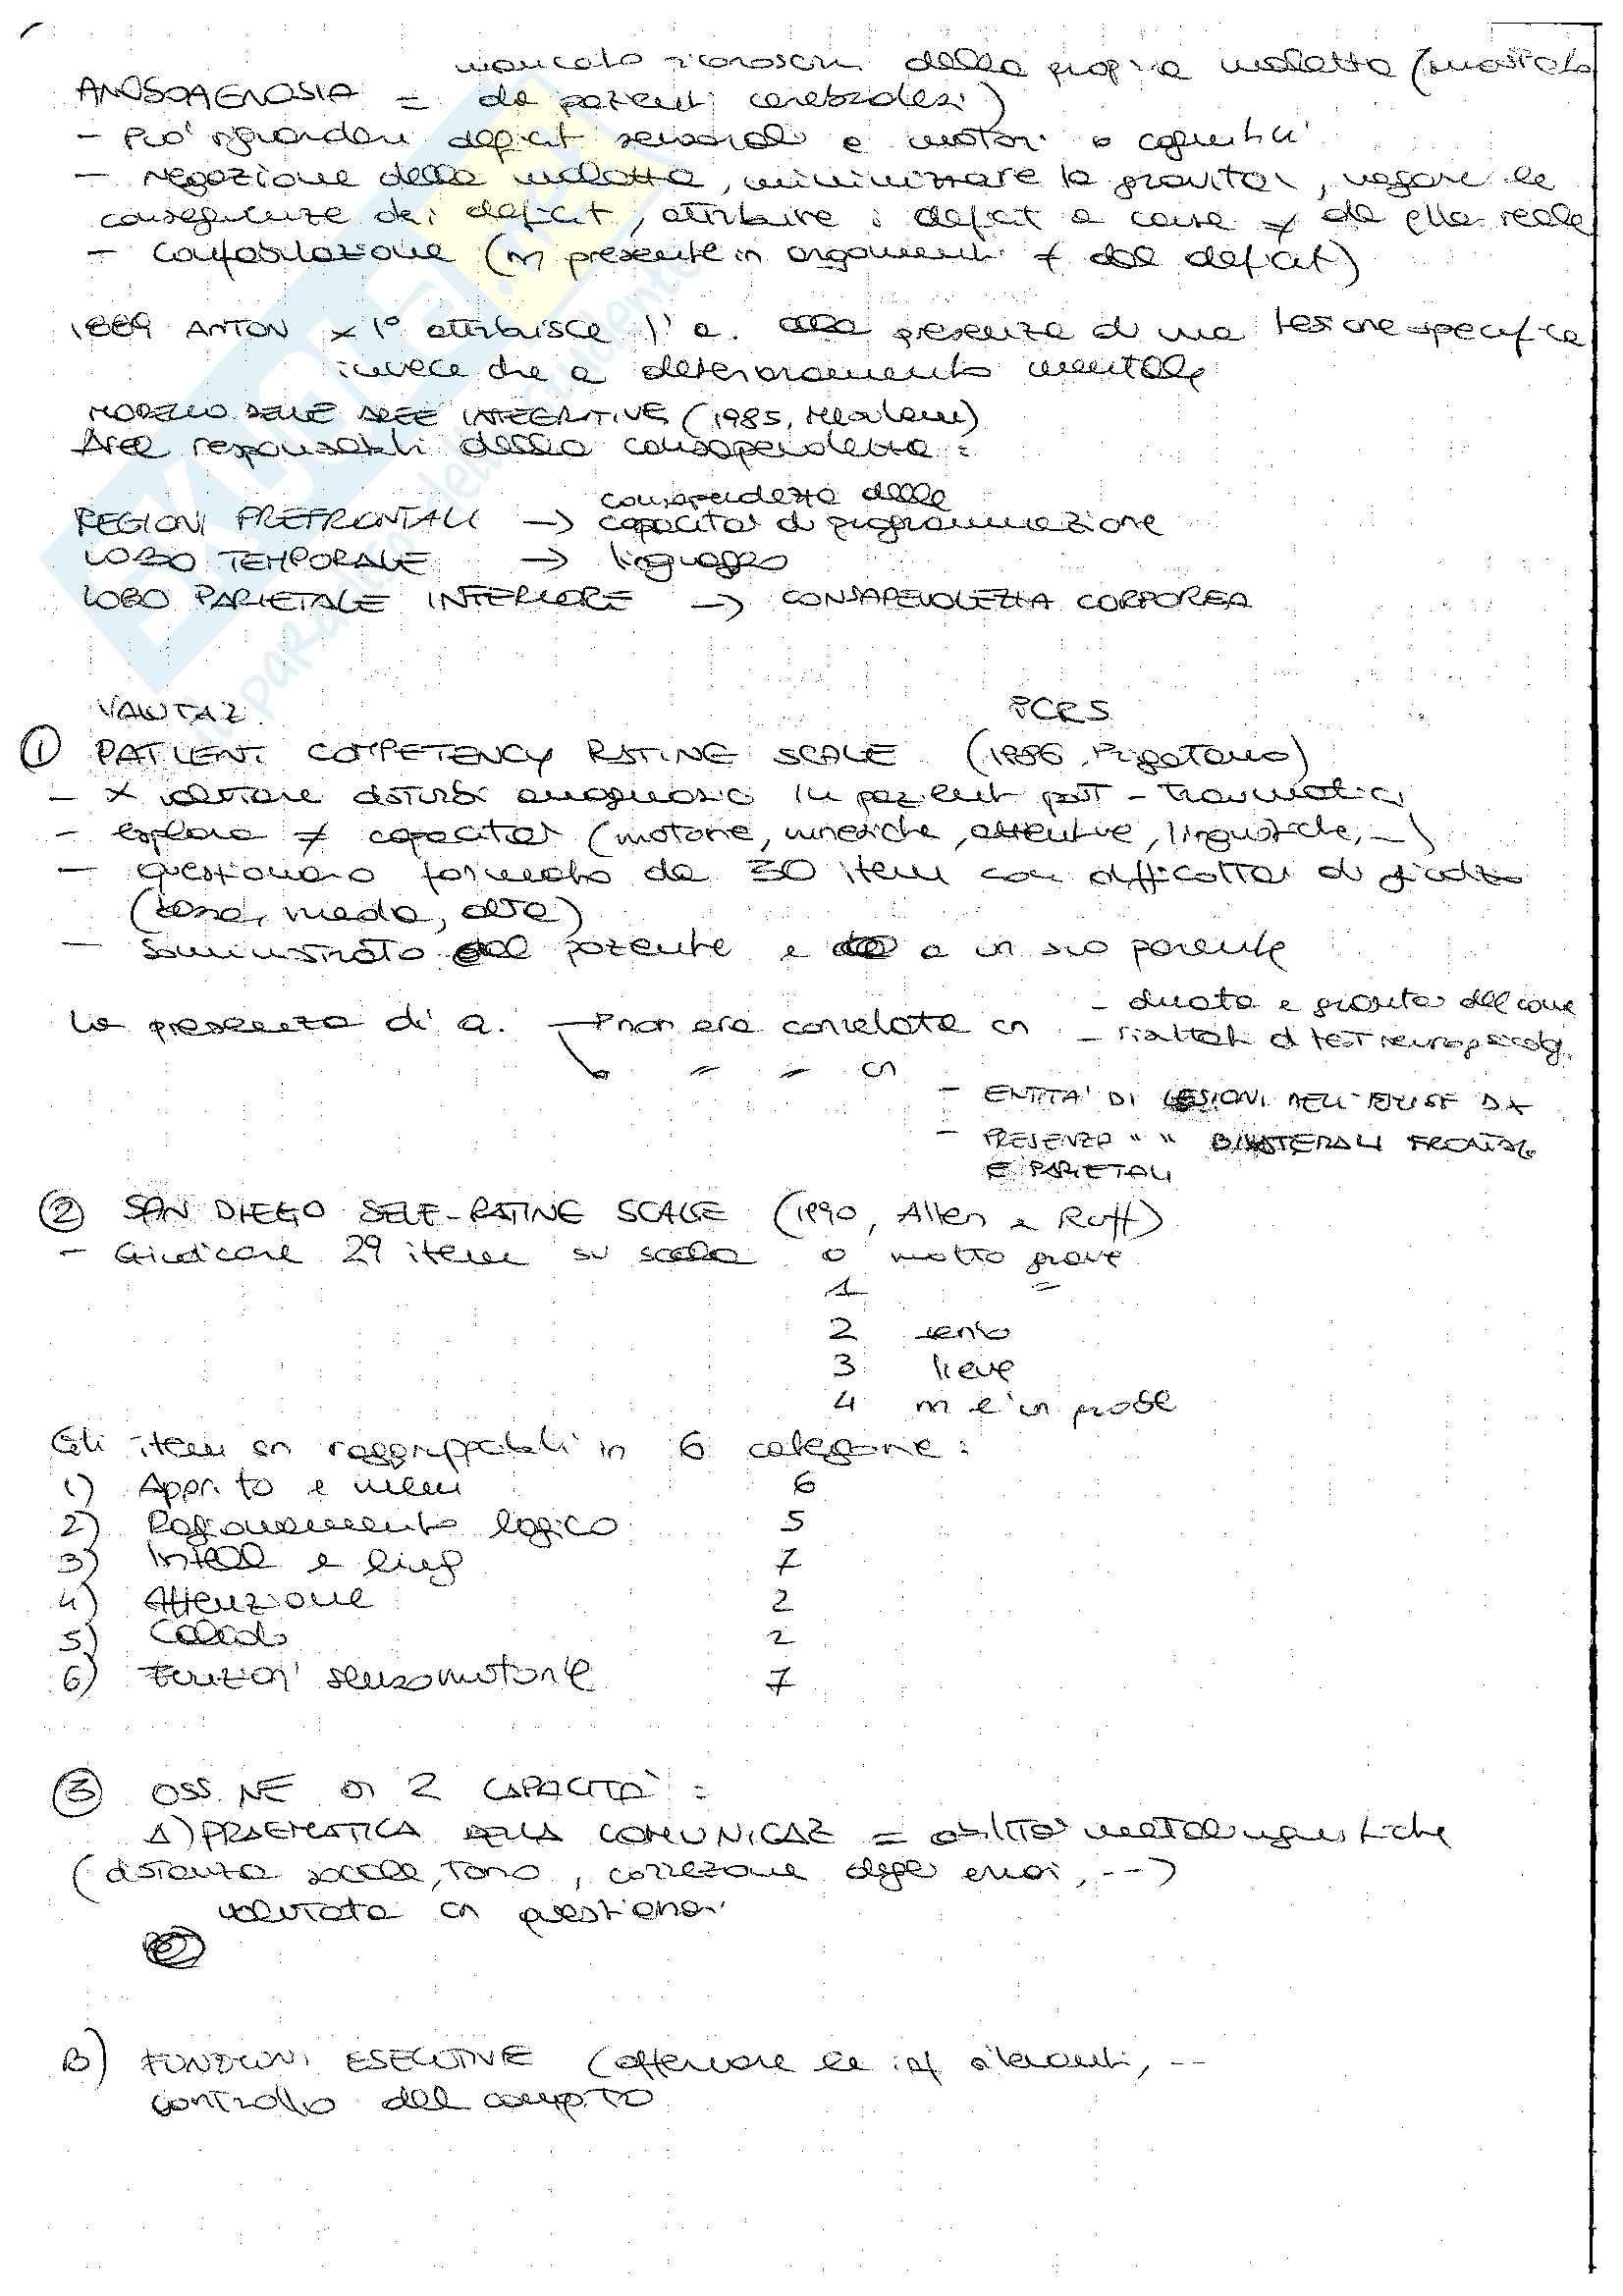 mancato riconoscim della propria malattia (mostrato
ANOSOAGNOSIA = da pazienti cerebrolesi)
- Può riguardare deficit sensoriali e motori o cognitivi
- negazione della malattia, minimizzare la gravità, negare le
conseguenze dei deficit, attribuire i deficit a cause ≠ da quella reale
- Confabulazione (nn presente in argomenti ≠ dal deficit)
1889 ANTON x 1° attribisce l'a. alla presenza di una lesione specifica
invece che a deterioramento mentale
MODELLO DELLE AREE INTEGRATIVE (1985, Mesulam)
Aree responsabili della consapevolezza:
consapevolezza delle
REGIONI PREFRONTALI → capacità di programmazione
LOBO TEMPORALE → linguaggio
LOBO PARIETALE INFERIORE → CONSAPEVOLEZZA CORPOREA
VALUTAZ. PCRS
① PATIENT COMPETENCY RATING SCALE (1986, Prigatano)
- x valutare disturbi anosognosici in pazienti post-traumatici
- esplora ≠ capacità (motorie, mnesiche, attentive, linguistiche, ...)
- questionario formato da 30 item con difficoltà di giudizio
(bassa, media, alta)
- Somministrato al paziente e a un suo parente
La presenza di a. → non era correlata cn - durata e gravità del coma
- risultati di test neuropsicolog.
↘ " " cn
- ENTITA' DI LESIONI NELL'EMISF DX
- PRESENZA " " BILATERALI FRONTALI
E PARIETALI
② SAN DIEGO SELF-RATING SCALE (1990, Allen e Ruff)
- Giudicare 29 item su scala 0 molto grave
1 =
2 serio
3 lieve
4 nn è un probl
Gli item sn raggruppabili in 6 categorie:
1) Appr.to e mem 6
2) Ragionamento logico 5
3) Intell e ling 7
4) Attenzione 2
5) Calcolo 2
6) Funzioni sensomotorie 7
③ OSS.NE DI 2 CAPACITÀ:
A) PRAGMATICA DELLA COMUNICAZ = abilità metalinguistiche
(distanza sociale, tono, correzione degli errori, ...)
valutata cn questionari
B) FUNZIONI ESECUTIVE (afferrare le inf rilevanti, ...
controllo del compito